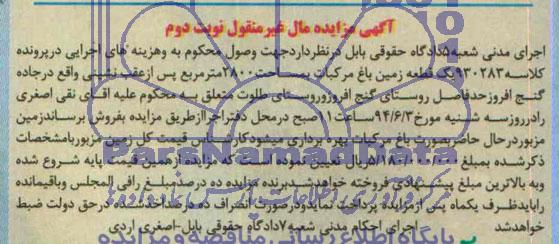 آگهی مزایده مال غیر منقول نوبت دوم
اجرای مدنی شعبه ۵دادگاه حقوقی بابل درنظرداردجهت وصول محکوم به وهزینه های اجرایی درپرونده
کلاسه ۹۳۰۲۸۳یک قطعه زمین باغ مرکبات بمساحت۲۸۰۰مترمربع پس ازعقب نشینی واقع درجاده
گنج افروزحدفاصل روستای گنج افروزوروستای طلوت متعلق به محکوم علیه اقای نقی اصغری
رادرروزسه شنبه مورخ۹۴/۶/۳ساعت۱۱صبح درمحل دفتراجراازطریق مزایده بفروش برساندزمین
مزبوردرحال حاضربصورت باغ مرکبات بهره برداری میشودکارشناس قیمت کل زمین مزبوربامشخصات
ذکرشده بمبلغ ریال تعیین نموده است که مزایده ازهمین قیمت پایه شروع شده
وبه بالاترین مبلغ پیشنهادی فروخته خواهدشدبرنده مزایده ده درصدمبلغ رافی المجلس وباقیمانده
رابایدظرف یکماه پس ازمزایده پرداخت نمایددرصورت انصراف ده درصداخذشده درحق دولت ضبط
خواهدشد اجرای احکام مدنی شعبه۷دادگاه حقوقی بابل-اصغری اردی
ParsNamadData
پایگاه اطلاع رسانی مناقصه و مزایده